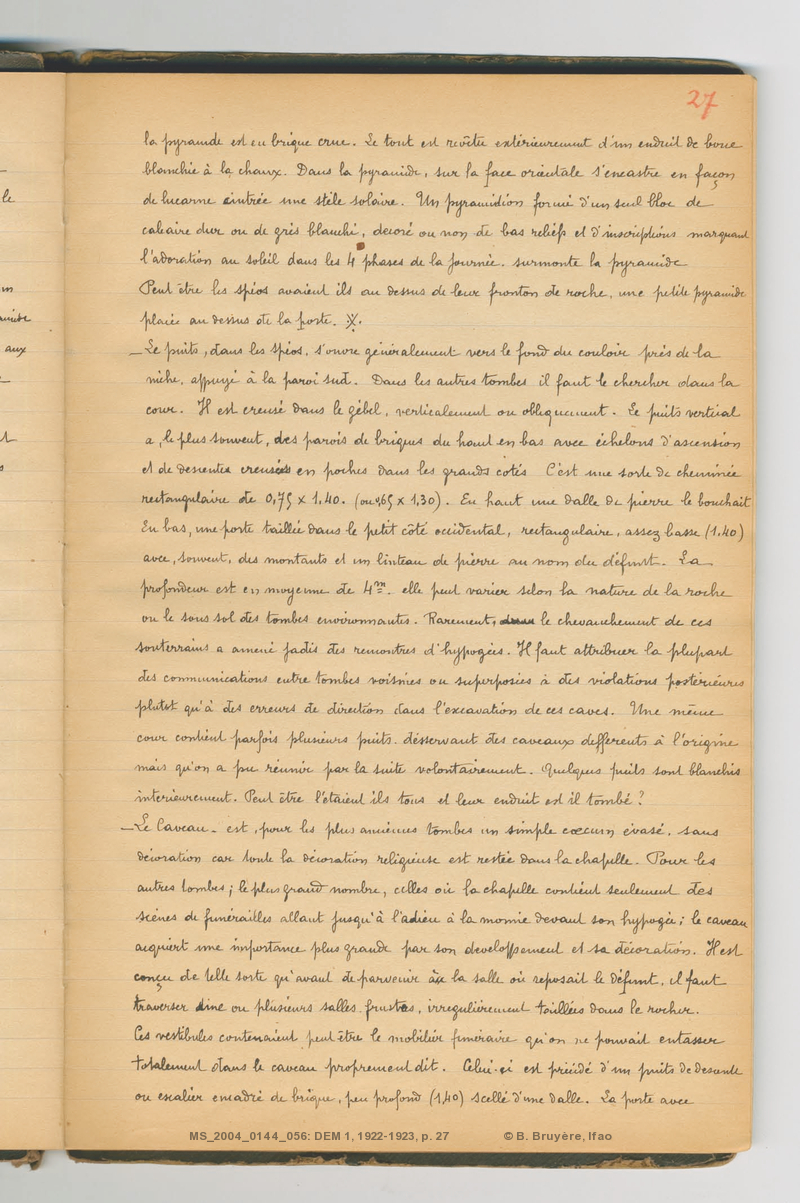 27
la pyramide est en brique crue. Le tout est revêtu extérieurement d'un enduit de boue
blanchie à la chaux. Dans la pyramide, sur la face orientale s'encastre en façon
de lucarne cintrée une stèle solaire. Un pyramidion formé d'un seul bloc de
calcaire dur ou de grès blanchi, décoré ou non de bas reliefs et d'inscriptions marquant
l'adoration au soleil dans les 4 phases de la journée. surmonte la pyramide
Peut être les spéos avaient ils au dessus de leur fronton de roche, une petite pyramide
placée au dessus de la porte. ※.
_ Le puits, dans les spéos. s'ouvre généralement vers le fond du couloir près de la
niche, appuyé à la paroi sud. Dans les autres tombes il faut le chercher dans la
cour. Il est creusé dans le gébel, verticalement ou obliquement. Le puits vertical
a, le plus souvent, des parois de briques du haut en bas avec échelons d'ascension
et de descentes creusés en poches dans les grands côtés C'est une sorte de cheminée
rectangulaire de 0,75 x 1.40. (ou 0,65 x 1,30). En haut une dalle de pierre le bouchait
En bas, une porte taillée dans le petit côté occidental, rectangulaire, assez basse (1.40)
avec, souvent, des montants et un linteau de pierre au nom du défunt. La
profondeur est en moyenne de 4m. elle peut varier selon la nature de la roche
ou le sous sol des tombes environnantes. Rarement, le chevauchement de ces
souterrains a amené jadis des rencontres d'hypogées. Il faut attribuer la plupart
des communications entre tombes voisines ou superposées à des violations postérieures
plutôt qu'à des erreurs de direction dans l'excavation de ces caves. Une même
cour contient parfois plusieurs puits. desservant des caveaux différents à l'origine
mais qu'on a pu réunir par la suite volontairement. Quelques puits sont blanchis
interieurement. Peut être l'étaient ils tous et leur enduit est il tombé ?
_ Le Caveau _ est, pour les plus anciennes tombes un simple cœcum évasé, sans
décoration car toute la décoration religieuse est restée dans la chapelle. Pour les
autres tombes ; le plus grand nombre, celles où la chapelle contient seulement des
scènes de funérailles allant jusqu'à l'adieu à la momie devant son hypogée ; le caveau
acquiert une importance plus grande par son developpement et sa décoration. Il est
conçu de telle sorte qu'avant de parvenir à la salle où reposait le défunt, il faut
traverser une ou plusieurs salles frustes, irregulièrement taillées dans le rocher.
Ces vestibules contenaient peut être le mobilier funéraire qu'on ne pouvait entasser
totalement dans le caveau proprement dit. Celui-ci est précédé d'un puits de descente
ou escalier encadré de brique, peu profond (1,40) scellé d'une dalle. La porte avec
MS_2004_0144_056: DEM 1, 1922-1923, p. 27 © B. Bruyère, Ifao